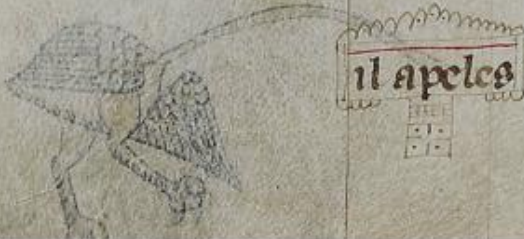 il apeles